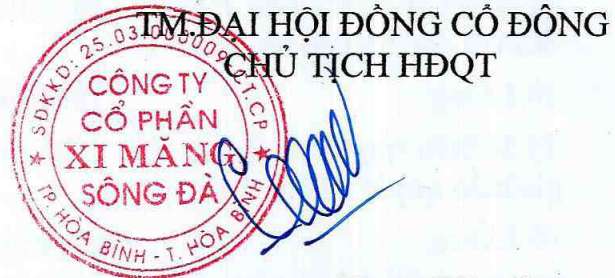 TM.ĐẠI HỘI ĐỒNG CỔ ĐÔNG
CHỦ TỊCH HĐQT
SĐKKD: 25.03.000009-C.T.C.P
CÔNG TY
CỔ PHẦN
XI MĂNG
SÔNG ĐÀ
TP. HÒA BÌNH - T. HÒA BÌNH